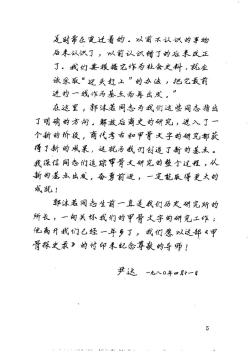 是时常在变迁着的。以前不认识的事物
后来认识了，以前认错了的后来改正
了。我们要根据它作为社会史料，就应
该采取“迎头赶上”的办法，把它最前
进的一线作为基点而再出发。”
在这里，郭沫若同志为我们这些同志指出
了明确的方向。解放后商史的研究，进入了一
个新的阶段，商代考古和甲骨文字的研究都获
得了新的成果，这就为我们创造了新的基点。
我深信同志们追踪甲骨文研究的整个过程，从
新的基点出发，奋勇前进，一定能取得更大的
成就！
郭沫若同志生前一直是我们历史研究所的
所长，一向关怀我们的甲骨文字的研究工作；
他离开我们已经一年多了，我们想以这部《甲
骨探史录》的付印来纪念尊敬的导师！
尹达 一九八〇年四月一日
5